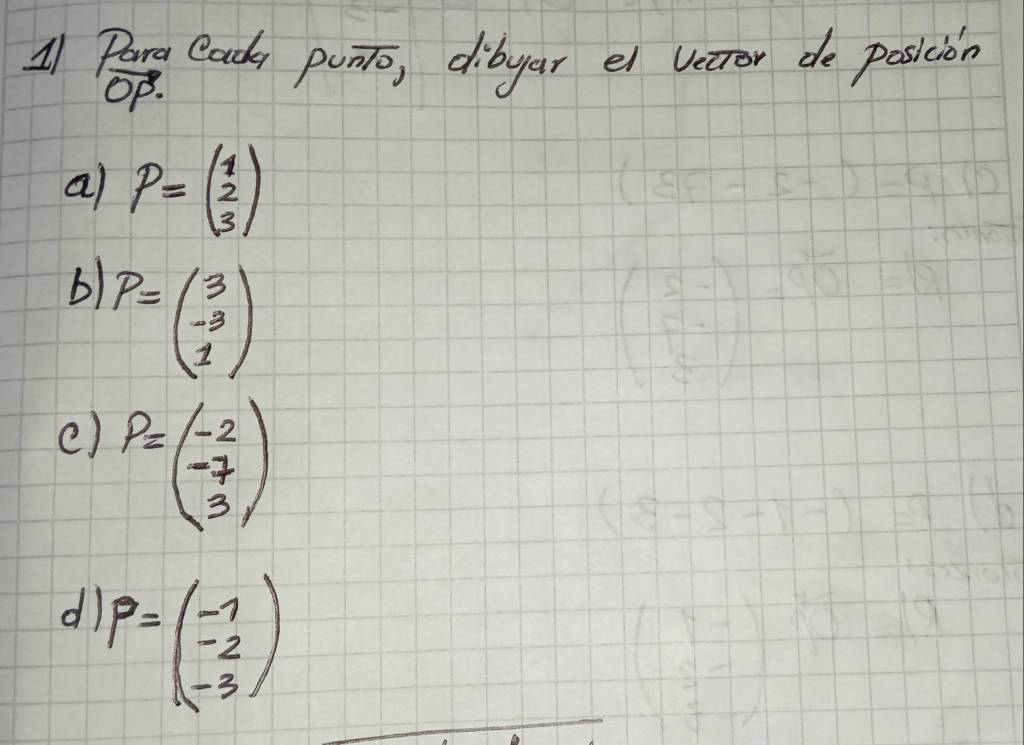 1) Para Cada punto, dibujar el Vector de posición
OP.
a) P= (1
2
3)
b) P= (3
-3
1)
c) P= (-2
-7
3)
d) P= (-1
-2
-3)